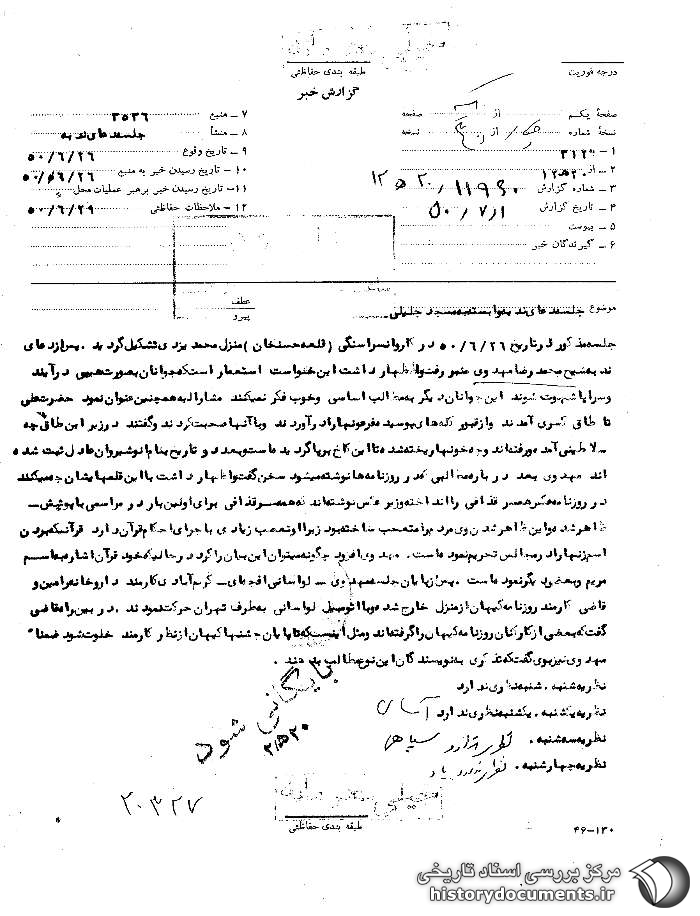 خیلی محرمانه
طبقه بندی حفاظتی
درجه فوریت
گزارش خبر
صفحهٔ یکم از صفحه
نسخهٔ شماره از نسخه
۱ – به ۳۱۲
۲ – از ۱۲۵۲۰
۳ – شماره گزارش ۱۱۹۶۰/ ۱۲۵۲۰
۴ – تاریخ گزارش ۵۰/۷/۱
۵ – پیوست
۶ – گیرندگان خبر
۷ – منبع ۳۵۳۶
۸ – منشأ جلسه دعای ندبه
۹ – تاریخ وقوع ۵۰/۶/۲۶
۱۰ – تاریخ رسیدن خبر به منبع ۵۰/۶/۲۶
۱۱ – تاریخ رسیدن خبر برهبر عملیات محل
۱۲ – ملاحظات حفاظتی ۵۰/۶/۲۹
عطف
پیرو
موضوع جلسه دعای ندبه وابسته به مسجد جلیلی
جلسه مذکور در تاریخ ۵۰/۶/۲۶ در کاروانسراسنگی (قلعه حسنخان) منزل محمد یزدی تشکیل گردید. پس از دعای
ندبه شیخ محمد رضا مهدوی منبر رفت و اظهار داشت این خواست استعمار است که جوانان بصورت هیپی درآیند
و سراپا شهوت شوند این جوانان دیگر به مطالب اساسی و خوب فکر نمیکنند مشارالیه همچنین عنوان نمود حضرت علی
تا طاق کسری آمدند و از قبور کله های پوسیده فرعونها را درآوردند و با آنها صحبت کردند و گفتند در زیر این طاق چه
سلاطینی آمده و رفته اند و چه خونها ریخته شده تا این کاخ برپا گردیده است و بعد در تاریخ بنام انوشیروان عادل ثبت شده
اند مهدوی بعد در باره مطالبی که در روزنامه ها نوشته میشود سخن گفت و اظهار داشت با این قلمهایشان چه میکنند
در روزنامه عکس همسر قذافی را انداخته و زیر عکس نوشته اند که همسر قذافی برای اولین بار در مراسمی با پوشش
ظاهر شده و این ظاهر شدن وی مردم را متعجب ساخته بود زیرا او تعصب زیادی با جرای احکام قرآن دارد قرآن که بردن
اسم زنها را در مجالس تحریم نموده است. مهدوی افزود چگونه میتوان این بیان را کرد در حالیکه خود قرآن اشاره به اسم
مریم و بعضی دیگر نموده است. پس از پایان جلسه مهدوی – لواسانی افجه ای – کریم آبادی کارمند داروخانه رامین و
قاضی کارمند روزنامه کیهان از منزل خارج شده و با اتومبیل لواسانی به طرف تهران حرکت نمودند. در بین راه قاضی
گفت که بعضی از کارکنان روزنامه کیهان را گرفته اند و مثل اینست که تا پایان جشنها کیهان از نظر کارمند خلوت شود ضمناً
مهدوی نیز بوی گفت که تذکری به نویسندگان این نوع مطالب بدهند.
نظریه شنبه. شنبه نظری ندارد
نظریه یکشنبه. یکشنبه نظری ندارد
نظریه سه شنبه. نظری ندارد
نظریه چهارشنبه. نظری ندارد
بایگانی شود
۲۰۳۲۷
خیلی محرمانه
طبقه بندی حفاظتی
۴۶–۱۳۰
مرکز بررسی اسناد تاریخی
historydocuments.ir